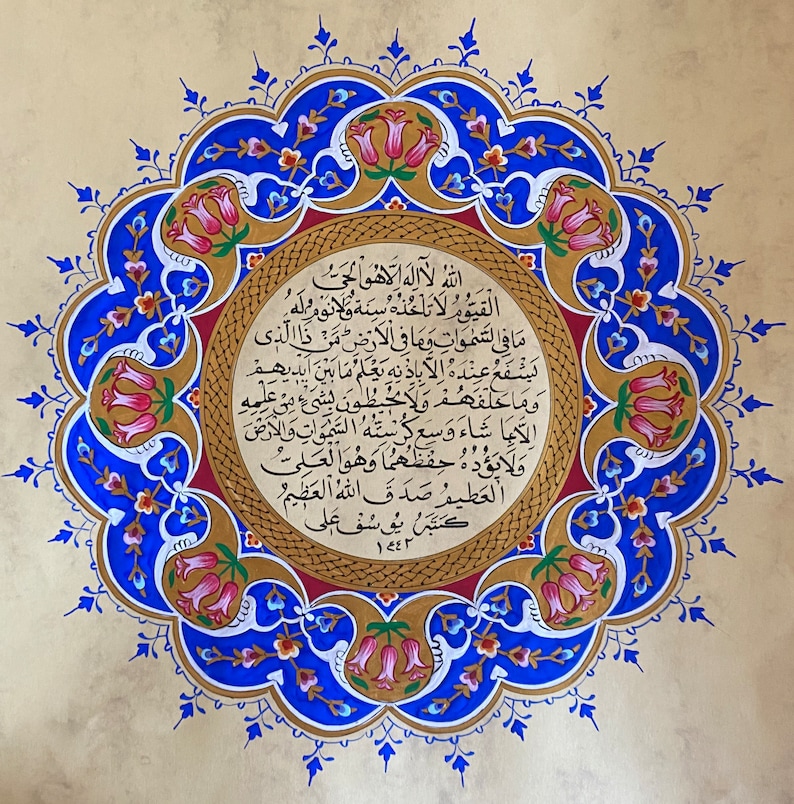 الله لا اله الا هو الحي
القيوم لا تأخذه سنة ولا نوم له
ما في السموات وما في الأرض من ذا الذي
يشفع عنده الا باذنه يعلم ما بين ايديهم
وما خلفهم ولا يحيطون بشيء من علمه
الا بما شاء وسع كرسيه السموات والأرض
ولا يؤده حفظهما وهو العلي
العظيم صدق الله العظيم
كتبه يوسف علي
١٤٤٢